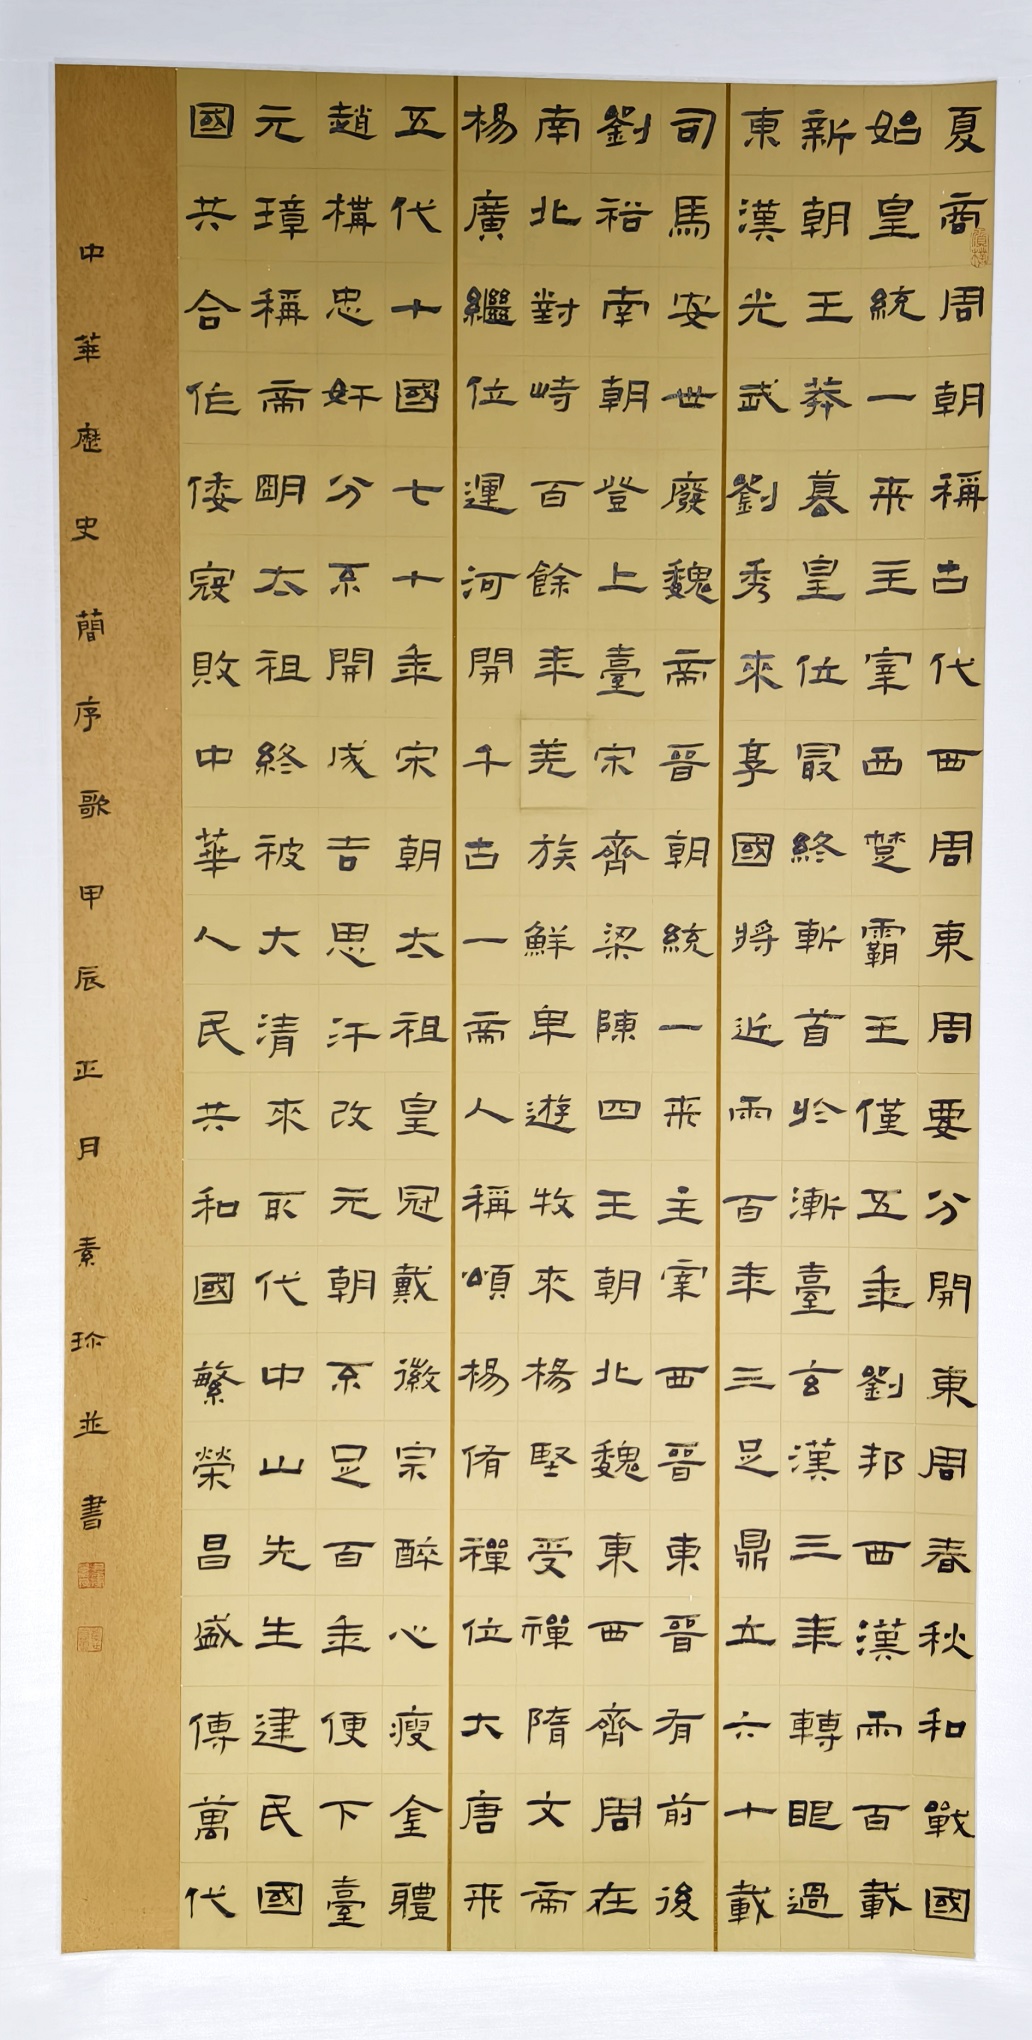 夏商周朝稱古代西周東周要分開東周春秋和戰國
始皇統一來主宰西楚霸王僅五年劉邦西漢兩百載
新朝王莽篡皇位最終斬首於漸臺玄漢三年轉眼過
東漢光武劉秀來享國將近兩百年三足鼎立六十載
司馬安世廢魏帝晉朝統一來主宰西晉東晉有前後
劉裕南朝登上臺宋齊梁陳四王朝北魏東西齊周在
南北對峙百餘年羌族鮮卑遊牧來楊堅受禪隋文帝
楊廣繼位運河開千古一帝人稱頌楊侑禪位大唐來
五代十國七十年宋朝太祖皇冠戴徽宗醉心瘦金體
趙構忠奸分不開成吉思汗改元朝不足百年便下臺
元璋稱帝明太祖終被大清來取代中山先生建民國
國共合作倭寇敗中華人民共和國繁榮昌盛傳萬代
中華歷史簡序歌甲辰正月素珍並書